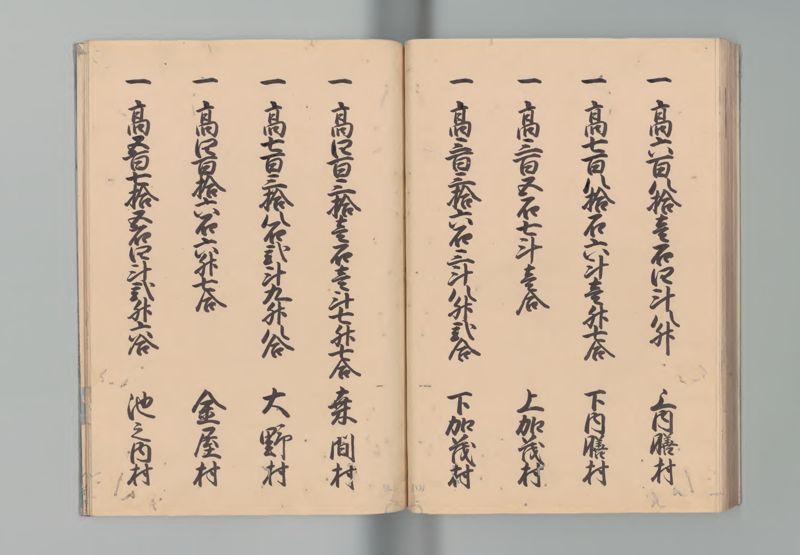 一 高六百八拾壱石四斗八升 上内膳村
一 高七百八拾石六斗壱升七合 下内膳村
一 高三百五石七斗壱合 上加茂村
一 高三百三拾六石三斗八升弐合 下加茂村
一 高四百三拾壱石壱斗七升七合 桑間村
一 高七百三拾八石弐斗九升八合 大野村
一 高四百拾六石六升七合 金屋村
一 高五百七拾五石四斗弐升六合 池之内村